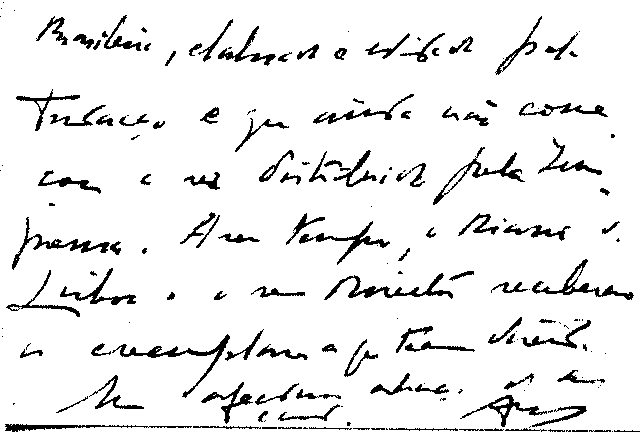 Brasileiro, elaborado e editado pela
Fundação e que ainda não come-
çou a ser distribuido pela Im-
prensa. A seu tempo, o Diário de
Lisboa e o seu Director receberão
os exemplares a que têm direito.
Um afectuoso abraço do seu